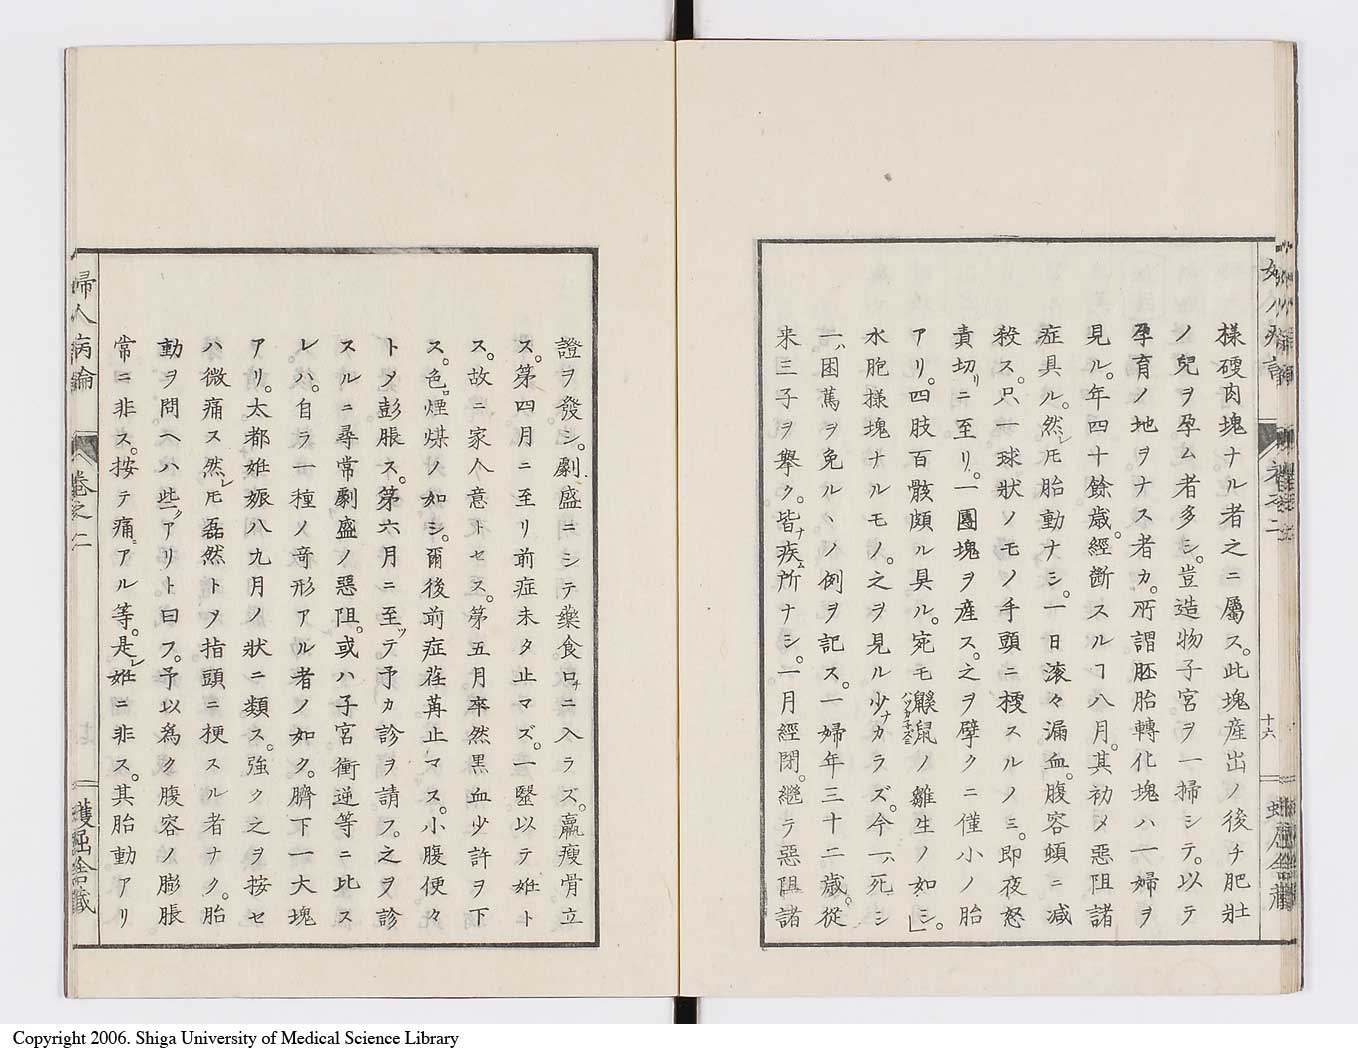 様硬肉塊ナル者之ニ屬ス。此塊産出ノ後チ肥壮
ノ兒ヲ孕ム者多シ。豈造物子宮ヲ一掃シテ。以テ
孕育ノ地ヲナス者カ。所謂胚胎轉化塊ハ一婦ヲ
見ル。年四十餘歳。經斷スルヿ八月。其初メ惡阻諸
症具ル。然レモ胎動ナシ。一日滚々漏血。腹容頓ニ减
殺ス。只一球狀ノモノ手頭ニ𥻘スルノミ。即夜怒
責切リニ至リ。一團塊ヲ産ス。之ヲ擘クニ僅小ノ胎
アリ。四肢百骸頗ル具ル。宛モ鼷鼠ノ雛生ノ如シ。」
水胞様塊ナルモノ。之ヲ見ル少ナカラズ。今一ハ死シ
一ハ困篤ヲ免ルヽノ例ヲ記ス。一婦年三十二歳。從
来三子ヲ擧ク。皆ナ疾ム所ナシ。一月經閉。繼テ惡阻諸
十六
證ヲ發シ。劇盛ニシテ藥食口チニ入ラズ。羸瘦骨立
ス。第四月ニ至リ前症未タ止マズ。一醫以テ姙ト
ス。故ニ家人意トセス。第五月卒然黒血少許ヲ下
ス。色。煙煤ノ如シ。爾後前症荏苒止マス。小腹便々
トメ彭脹ス。第六月ニ至ツテ予カ診ヲ請フ。之ヲ診
スルニ尋常劇盛ノ惡阻。或ハ子宮衝逆等ニ比ス
レハ。自ラ一種ノ竒形アル者ノ如ク。臍下一大塊
アリ。太都姙娠八九月ノ狀ニ類ス。強ク之ヲ按セ
ハ微痛ス然レモ磊然トソ指頭ニ梗スル者ナク。胎
動ヲ問ヘハ些ツアリト曰フ。予以為ク腹容ノ膨脹
常ニ非ス。按テ痛ニアル等。是レ姙ニ非ス。其胎動アリ
婦人病論
卷之二
蠖屈舎藏
Copyright 2006. Shiga University of Medical Science Library